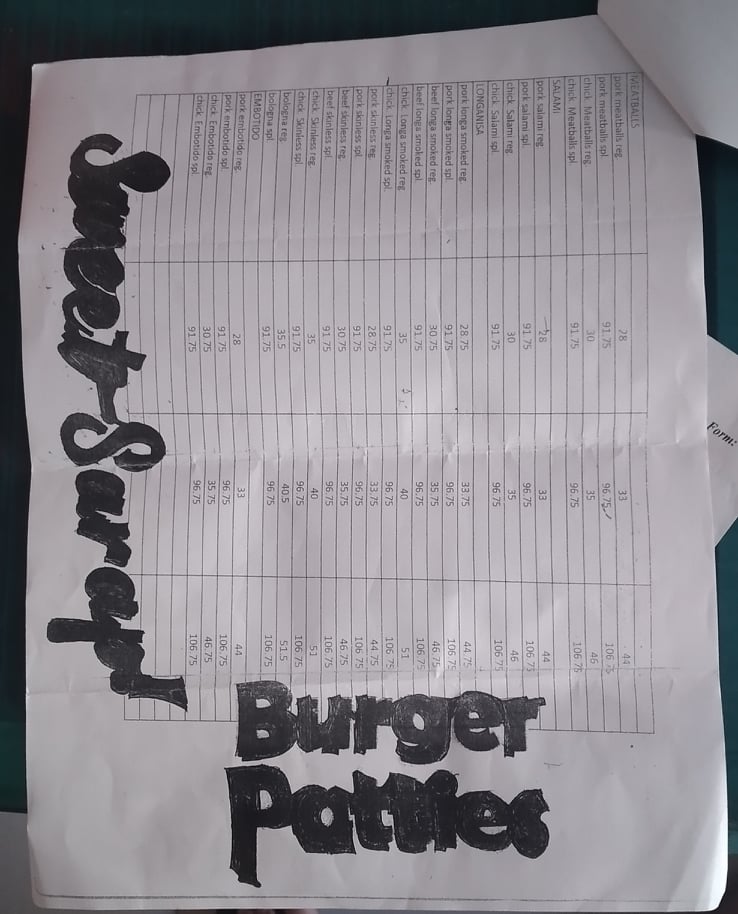 MEATBALLS
pork meatballs reg 28 33 44
pork meatballs spl 91.75 96.75 106.75
chick. Meatballs reg 30 35 46
chick. Meatballs spl 91.75 96.75 106.75
SALAMI
pork salami reg 28 33 44
pork salami spl. 91.75 96.75 106.75
chick. Salami reg 30 35 46
chick. Salami spl. 91.75 96.75 106.75
LONGANISA
pork longa smoked reg. 28.75 33.75 44.75
pork longa smoked spl. 91.75 96.75 106.75
beef longa smoked reg 30.75 35.75 46.75
beef longa smoked spl. 91.75 96.75 106.75
chick. Longa smoked reg. 35 40 51
chick. Longa smoked spl. 91.75 96.75 106.75
pork skinless reg. 28.75 33.75 44.75
pork skinless spl 91.75 96.75 106.75
beef skinless reg. 30.75 35.75 46.75
beef skinless spl 91.75 96.75 106.75
chick. Skinless reg. 35 40 51
chick. Skinless spl. 91.75 96.75 106.75
bologna reg. 35.5 40.5 51.5
bologna spl 91.75 96.75 106.75
EMBOTIDO
pork embotido reg. 28 33 44
pork embotido spl. 91.75 96.75 106.75
chick. Embotido reg 30.75 35.75 46.75
chick. Embotido spl. 91.75 96.75 106.75
Sweet-Sarap!
Burger
Patties
Form: